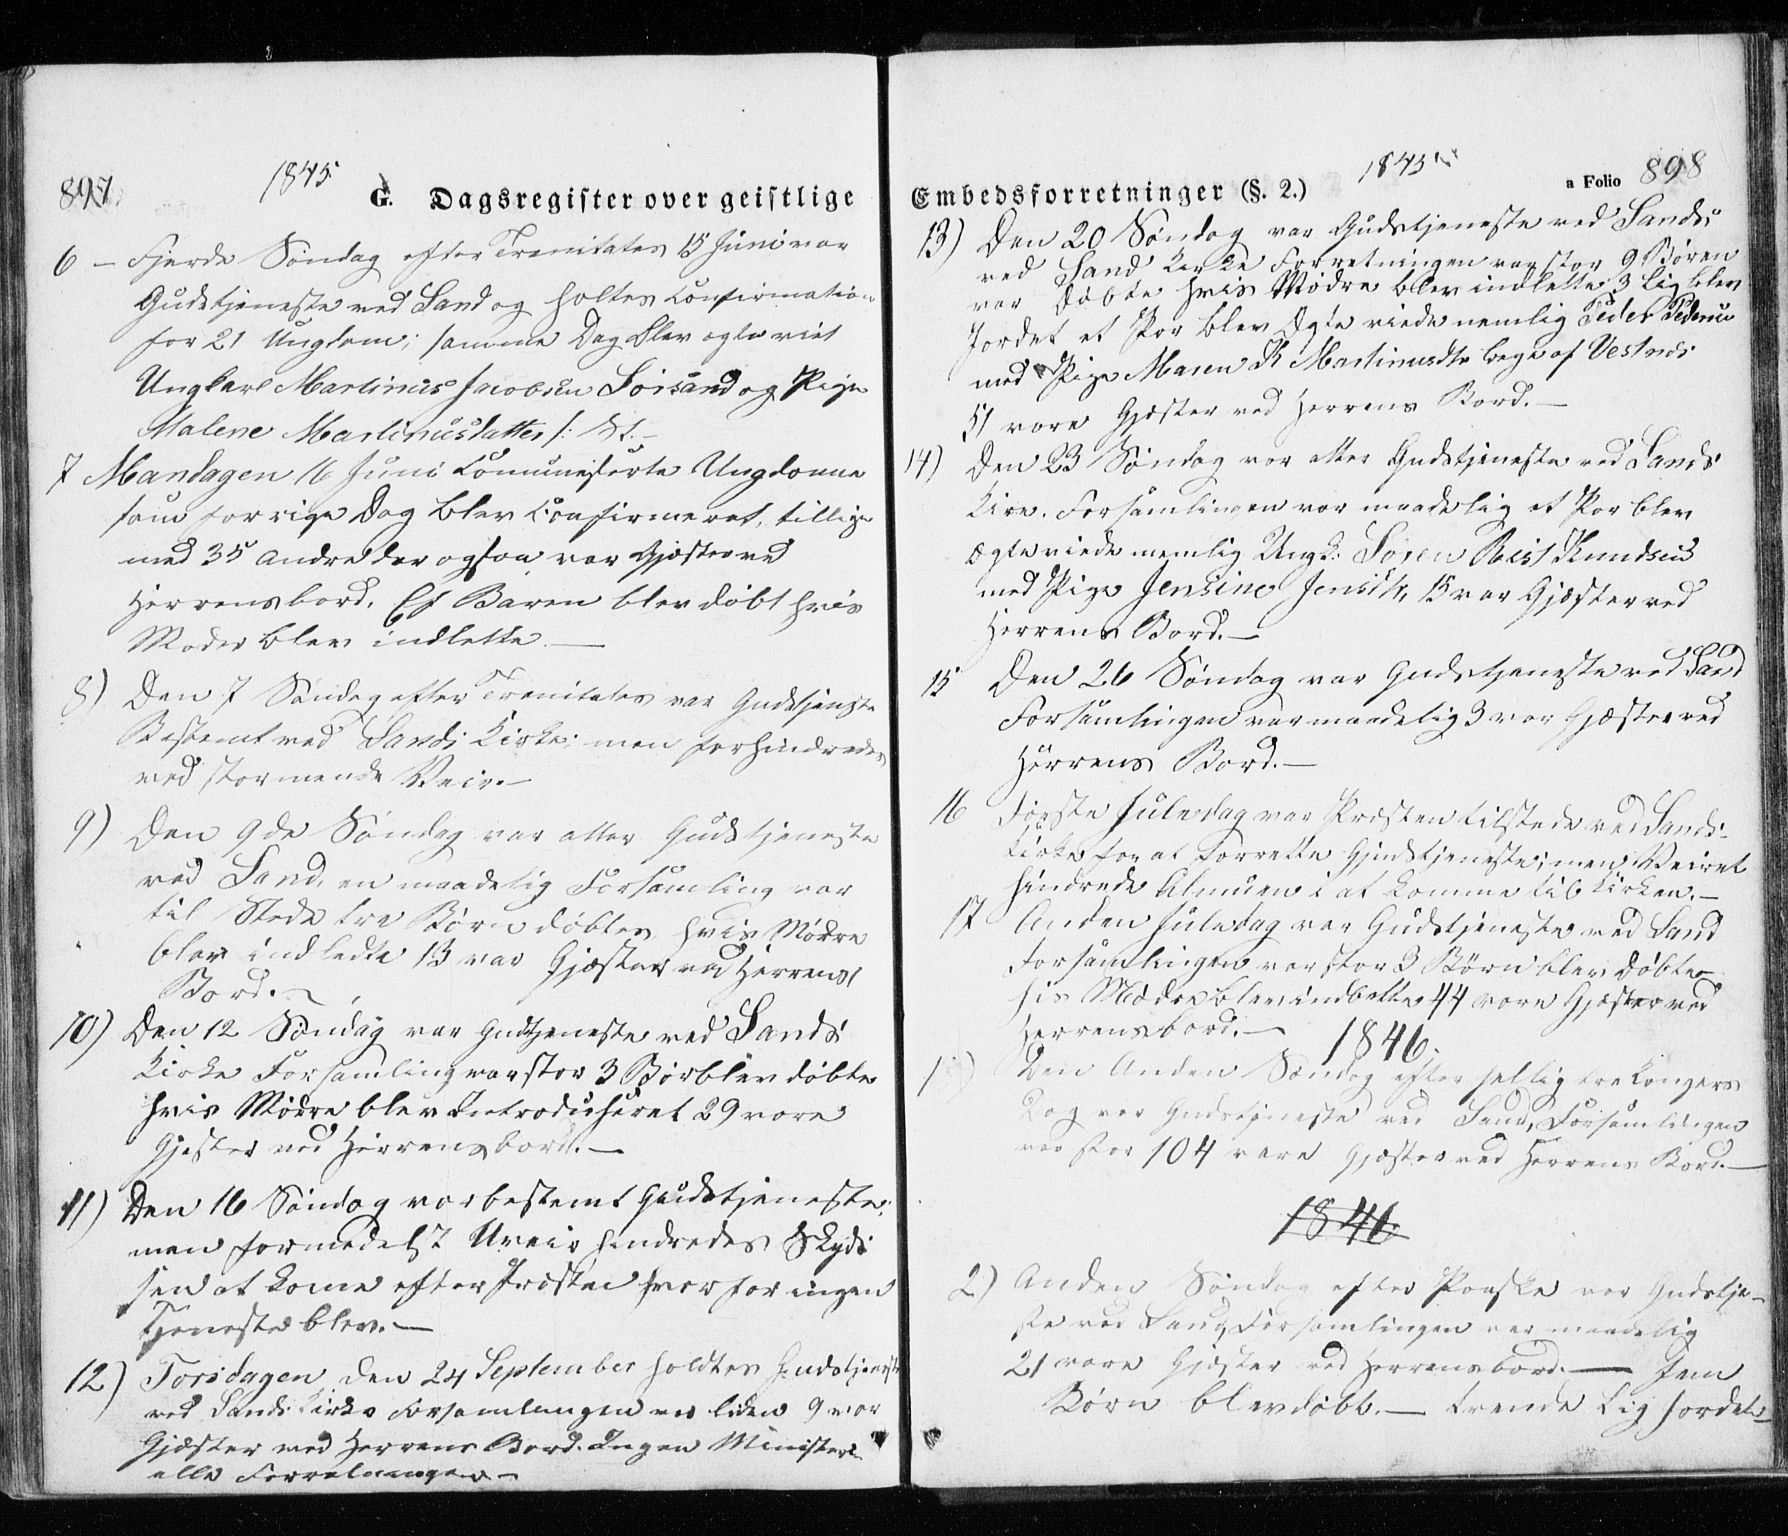 897.
1845
G. Dagsregister over geistlige
6 – Fjerde Söndag efter Trenitates 15 Juni var
Gudstjeneste ved Sand og holtes Confirmation
for 21 Ungdom; samme Dag blev ægte viet
Ungkarl Martinus Jacobsen Sörsand og Pige
Malene Martinusdatter
7 Mandagen 16 Juni Comuneserte Ungdomne
som forrige Dag blev Confirmeret, tillige
med 35 andre der ogsaa var Gjester ved
Herrensbord. Et Baren blev döbt hvis
Moder blev indlette. —
8) Den 7 Söndag efter Trenitates var Gudstjenste
Bestemt ved Sands Kirke; men forhindredes
ved stormende Veir. —
9) Den 9de Söndag var atter Gudstjeneste
ved Sand, en maadelig Forsamling var
til Stede tre Börn döbtes hvis Mödre
blev indledte 13 var Gjæster ved Herrens
Bord. —
10) Den 12 Söndag var Gudtjeneste ved Sands
Kirke Forsamling var stor 3 Bör blev döbte
hvis Mödre blev Introduseret 29 vore
Gjester ved Herrensbord. —
11) Den 16 Söndag var bestemt Gudstjeneste;
men formedelst Uveir hindredes Skyds
sen at kome efter Præsten hvorfor ingen
Tjeneste blev. —
12) Torsdagen den 24 September holdtes Gudstjeneste
ved Sands Kirke Forsamlingen var liden 9 var
Gjæster ved Herrens Bord. Ingen Ministeri
elle Forretninger —
Embedsforretninger (§. 2.)
1845
a Folio 898
13) Den 20 Söndag var Gudstjeneste ved Sands
ved Sand Kirke Forretningen var stor 9 Bören
var döbte hvis Mödre blev indlette 3 Lig blev
Jordet et Par blev Ægte viede nemlig Peder Pedersen
med Pige Maren K Martinusdtr begge af Vestnes
51 vore Gjæster ved Herrens Bord. —
14) Den 23 Söndag var atter Gudstjeneste ved Sands
Kire. Forsamlingen var maadelig et Par blev
Ægteviede nemlig Ungk: Sören Rist Knudsen
med Pige Jensine Jensdtr, 15 var Gjæster ved
Herrens Bord. —
15 Den 26 Söndag var Gudstjeneste ved Sand
Forsamlingen var maadelig 3 var Gjæster ved
Herrens Bord. —
16 Förste Juledag var Præsten tilstede ved Sands
Kirke for at forrette Gjudstjeneste; men Veiret
hindrede Almuen i at komme til Kirken. —
17 Anden Juledag var Gudstjeneste ved Sand
Forsamlingen var stor 3 Börn blev döbte
his Mödre blev indlette 44 vare Gjæster ved
Herrensbord. —
1846.
1) Den Anden Söndag efter hellig tre Kongers
Dag var Gudstjeneste ved Sand, Forsamlingen
var stor 104 vare Gjæster ved Herrens Bord. —
1846
2) Anden Söndag efter Paaske var Gudstje-
ste ved Sand, Forsamlingen var maadelig
21 vare Gjæster ved Herrensbord. — Fem
Börn blev döbt. — trende Lig Jordet —